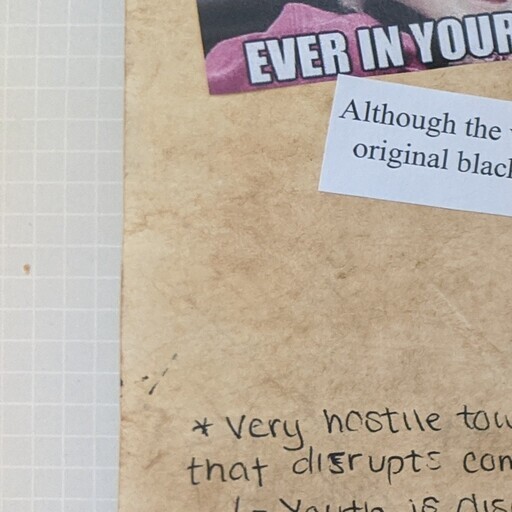 EVER IN YOUR
Although the
original blac
* Very hostile tow
that disrupts con
- Youth is dis